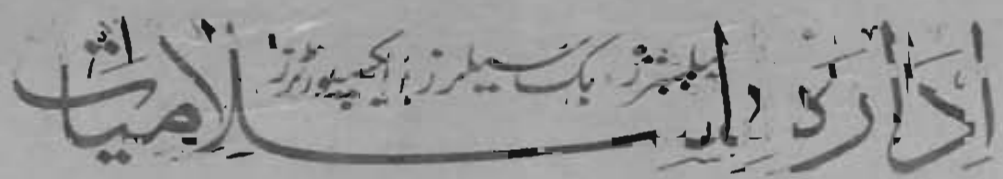 ادارۂ اسلامیات
پبلشرز، بک سیلرز، ایکسپورٹرز